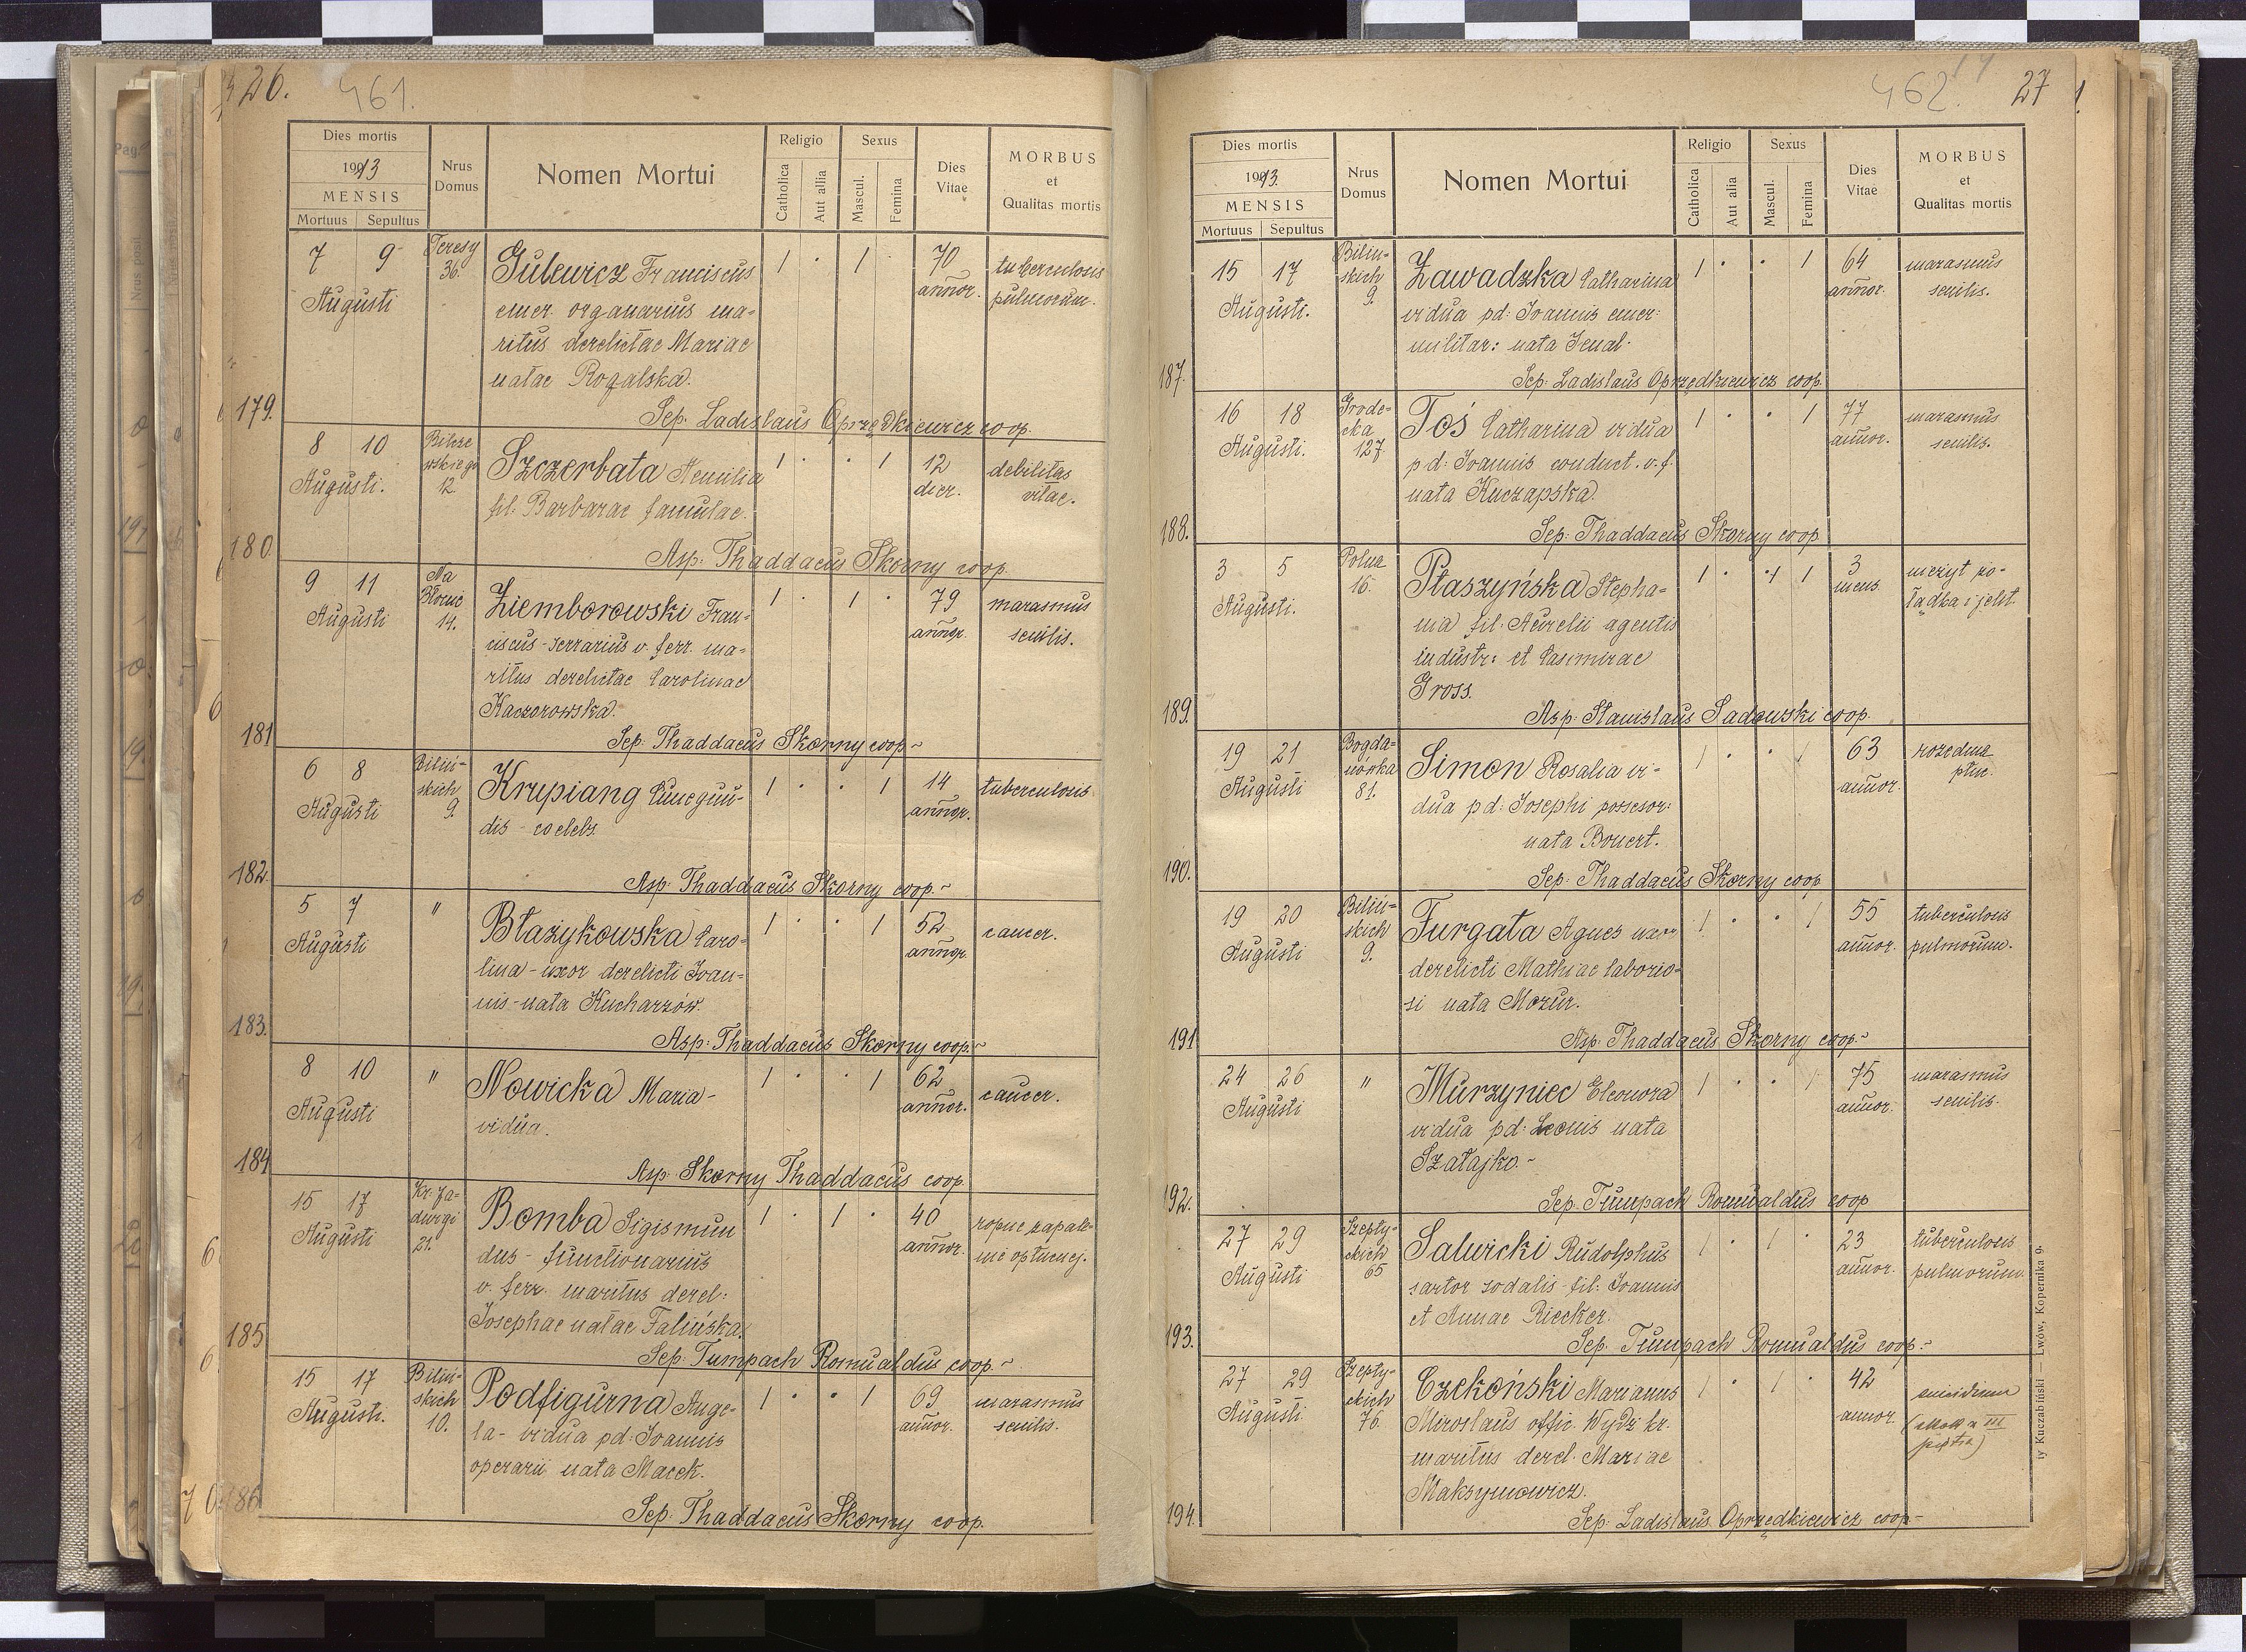 26.
461.
Dies mortis
1913
MENSIS
Mortuus Sepultus
Nrus Domus
Nomen Mortui
Religio
Catholica
Aut alia
Sexus
Mascul.
Femina
Dies Vitae
MORBUS
et
Qualitas mortis
179.
7 9
Augusti
Teresy
36.
Gulewicz Franciscus
emer. organarius ma=
ritus derelictae Mariae
natae Rogalska.
1 · 1 ·
70
annor.
tuberculosis
pulmorum.
Sep: Ladislaus Oprzędkiewicz coop.
180
8 10
Augusti.
Bilcze
wskiego
12.
Szczerbata Aemilia
fil: Barbarae famulae.
1 · · 1
12
dier.
debilitas
vitae.
Asp: Thaddaeus Skorny coop.
181
9 11
Augusti
Na
Błonie
14.
Ziemborowski Fran=
ciscus - serrarius v. ferr. ma=
ritus derelictae Carolinae
Kaczorowska.
1 · 1 ·
79
annor.
marasmus
senilis.
Sep: Thaddaeus Skorny coop ~
182.
6 8
Augusti
Biliń=
skich
9.
Krupiang Cunegun=
dis - coelebs.
1 · · 1
14
annor.
tuberculosis
Asp: Thaddaeus Skorny coop. ~
183.
5 7
Augusti
"
Błażykowska Caro=
lina - uxor derelicti Joan=
nis - nata Kucharzów.
1 · · 1
52
annor.
cancer.
Asp: Thaddaeus Skorny coop. ~
184
8 10
Augusti
"
Nowicka Maria -
vidua.
1 · · 1
62
annor.
cancer.
Asp: Skorny Thaddaeus coop
185
15 17
Augusti
Kr: Ja=
dwigi
21.
Bomba Sigismun
dus - functionarius
v. ferr. maritus derel:
Josephae natae Falińska.
1 · 1 ·
40
annor.
ropne zapale=
nie opłucnej.
Sep: Tumpach Romualdus coop. ~
186
15 17
Augusti.
Biliń=
skich
10.
Podfigurna Ange=
la - vidua pd: Joannis
operarii nata Macek.
1 · · 1
69
annor.
marasmus
senilis.
Sep: Thaddaeus Skorny coop.
462.
27
Dies mortis
1913.
MENSIS
Mortuus Sepultus
Nrus Domus
Nomen Mortui
Religio
Catholica
Aut alia
Sexus
Mascul.
Femina
Dies Vitae
MORBUS
et
Qualitas mortis
187.
15 17
Augusti.
Biliń=
skich
9.
Zawadzka Catharina
vidua pd: Joannis emer:
militar: nata Jenal.
1 · · 1
64
annor.
marasmus
senilis.
Sep: Ladislaus Oprzędkiewicz coop.
188.
16 18
Augusti.
Grode=
cka
127.
Toś Catharina vidua
pd: Joannis conduct. v. f.
nata Kuczapska.
1 · · 1
77
annor.
marasmus
senilis.
Sep: Thaddaeus Skorny coop
189.
3 5
Augusti.
Polna
16.
Ptaszyńska Stepha=
nia fil: Aurelii agentis
industr: et Casimirae
Gross.
1 · 1 1
3
mens.
nieżyt żo-
łądka i jelit.
Asp: Stanislaus Sadowski coop.
190.
19 21
Augusti
Bogda=
nówka
81.
Simon Rosalia vi-
dua pd: Josephi possesor:
nata Bonert.
1 · · 1
63
annor.
rozedma
płuc.
Sep: Thaddaeus Skorny coop
191
19 20
Augusti
Biliń=
skich
9.
Furgata Agnes uxor
derelicti Mathiae laborio=
si nata Mozur.
1 · · 1
55
annor.
tuberculosis
pulmorum.
Asp: Thaddaeus Skorny coop.~
192.
24 26
Augusti
"
Murzyniec Eleonora
vidua pd: Leonis nata
Szatajko. -
1 · · 1
75
annor.
marasmus
senilis.
Sep. Tumpach Romualdus coop
193.
27 29
Augusti
Szepty-
ckich
65
Salwicki Rudolphus
sartor sodalis fil: Joannis
et Annae Riecker.
1 · 1 ·
23
annor.
tuberculosis
pulmorum.
Sep. Tumpach Romualdus coop.~
194.
27 29
Augusti
Szepty-
ckich
76.
Czekoński Marianus
Miroslaus offic. Wydz kr.
maritus derel. Mariae
Maksymowicz.
1 · 1 ·
42
annor.
suicidium
III
piętra)
Sep: Ladislaus Oprzędkiewicz coop~
Kuczabiński — Lwów, Kopernika 9.